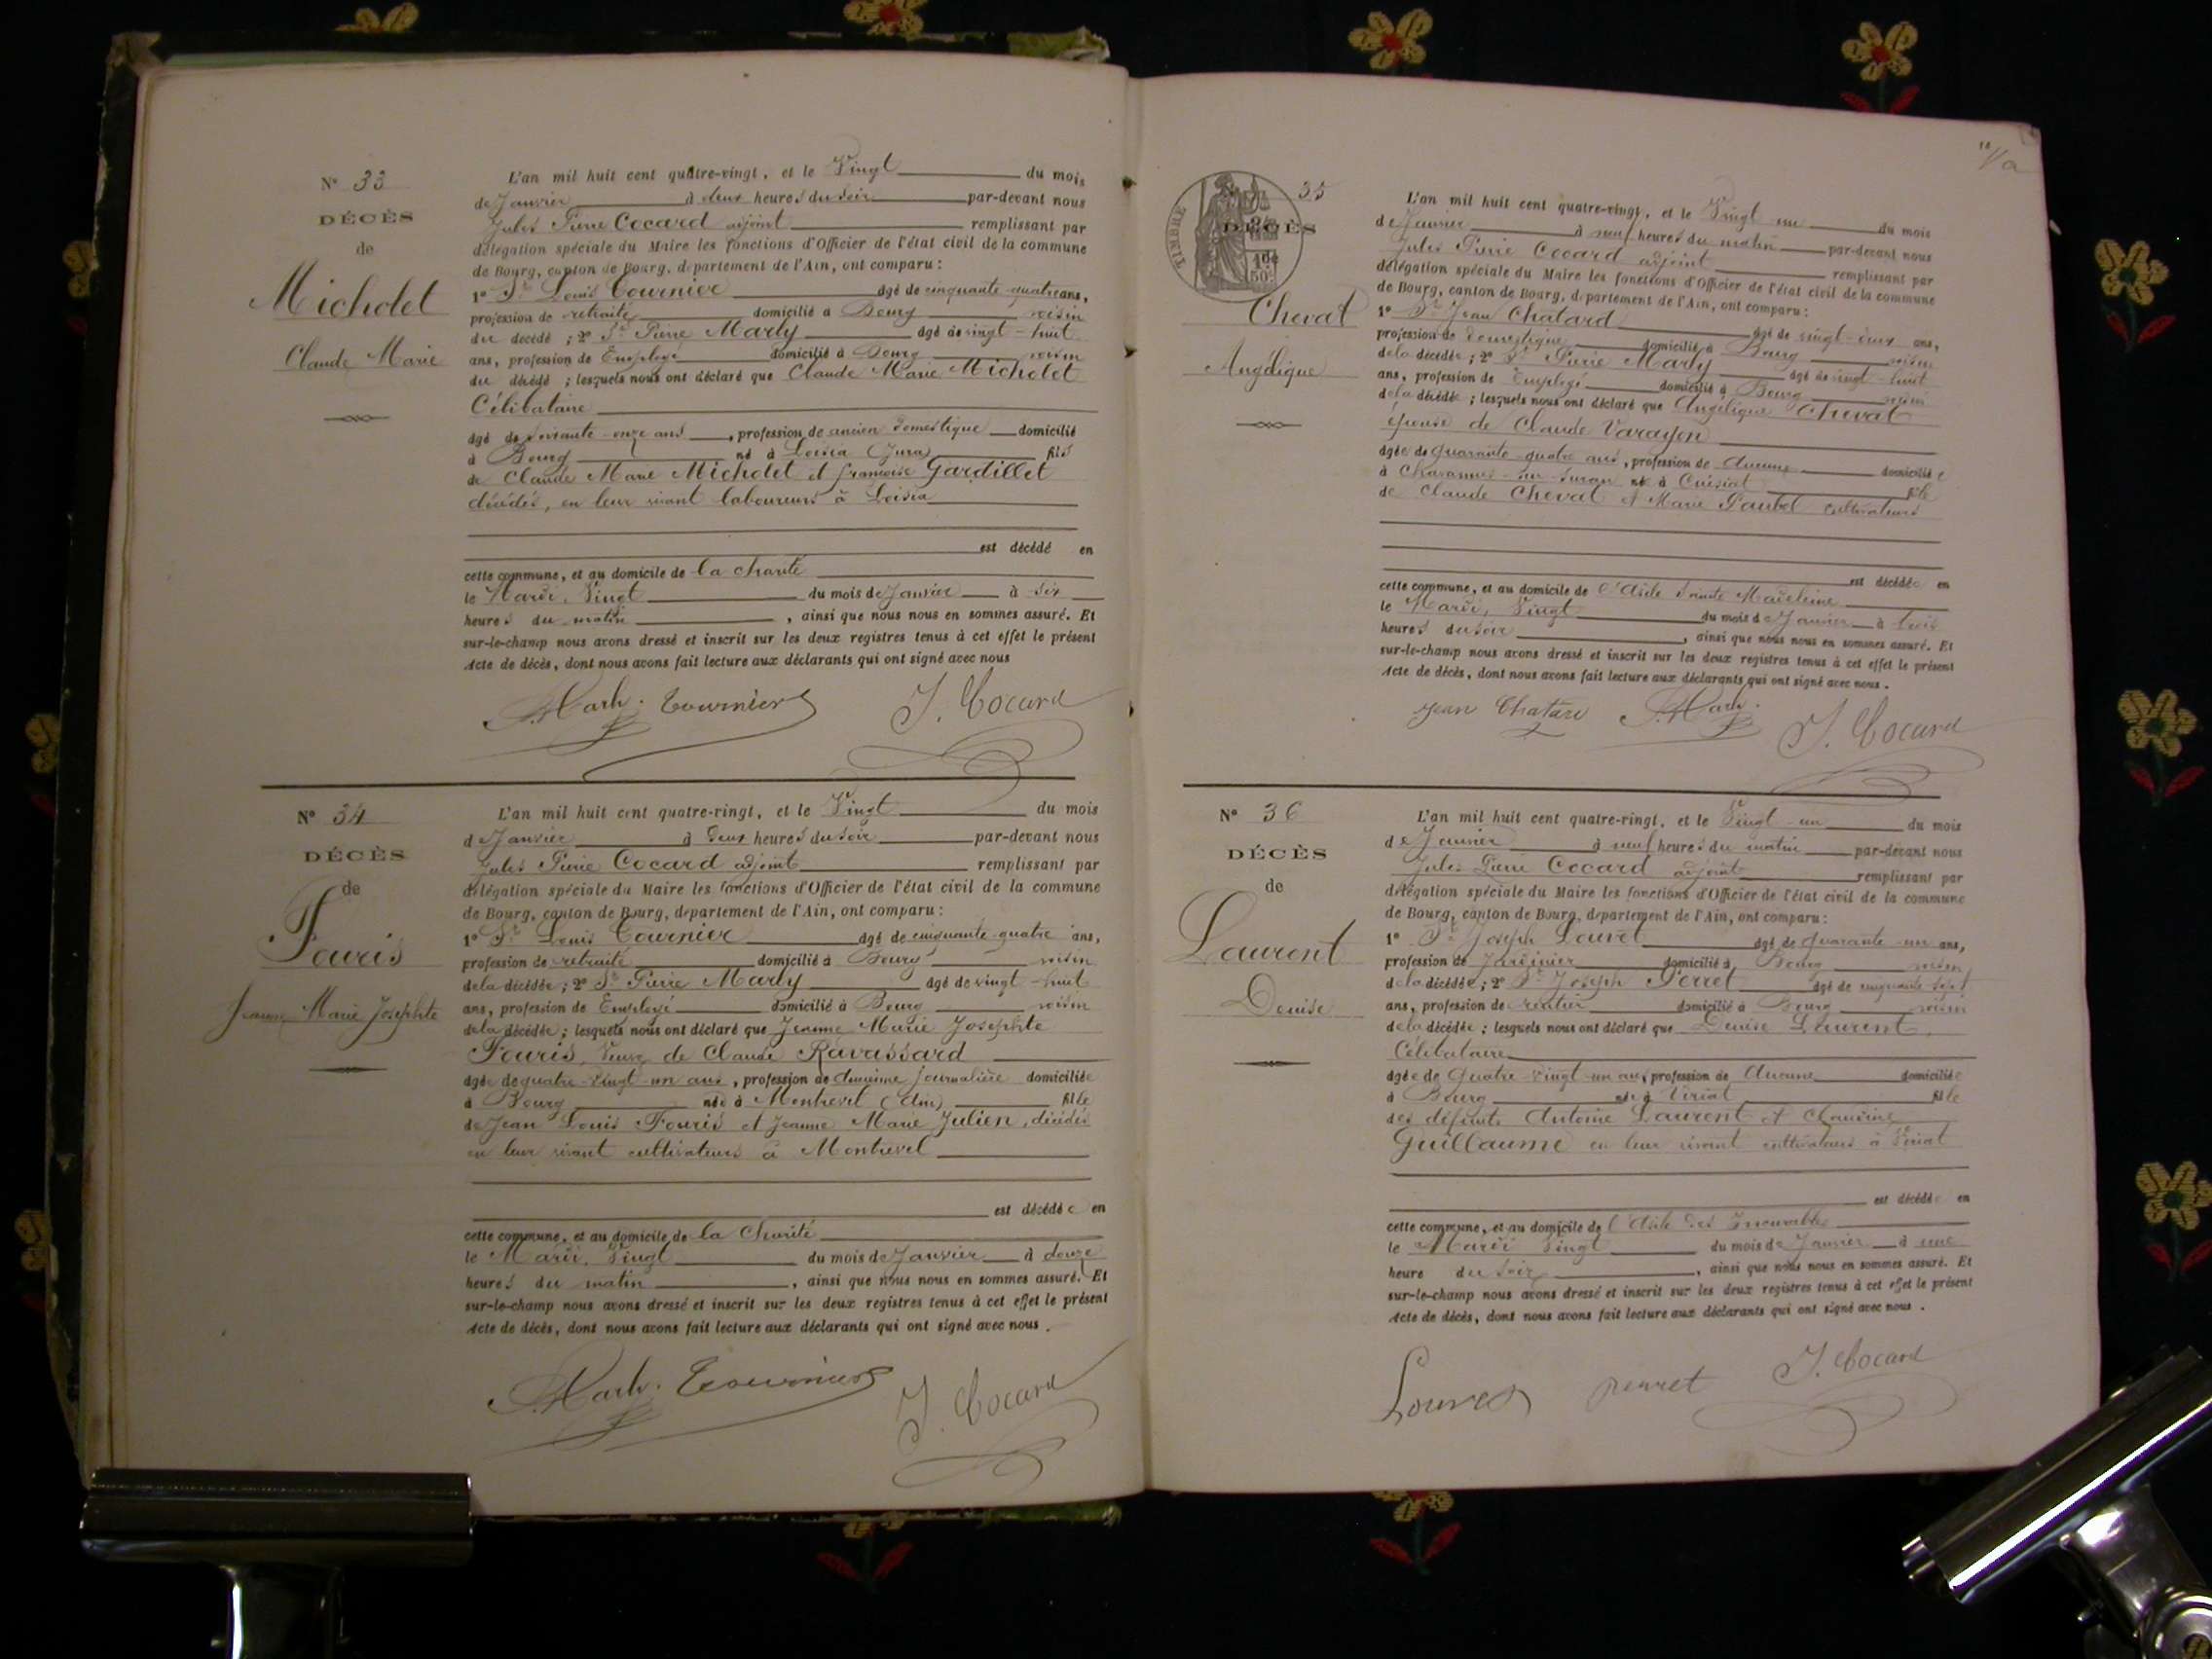 N° 33
DÉCÈS
de
Micholet
Claude Marie
L'an mil huit cent quatre-vingt, et le Vingt du mois
de Janvier à deux heures du soir par-devant nous
Jules Pierre Cocard adjoint remplissant par
délégation spéciale du Maire les fonctions d'Officier de l'état civil de la commune
de Bourg, canton de Bourg, département de l'Ain, ont comparu :
1° Sr Louis Tournier âgé de cinquante-quatre ans,
profession de retraité domicilié à Bourg voisin
du décédé ; 2° Sr Pierre Marly âgé de vingt-huit
ans, profession de Employé domicilié à Bourg voisin
du décédé ; lesquels nous ont déclaré que Claude Marie Micholet
Célibataire
âgé de soixante-onze ans, profession de ancien domestique domicilié
à Bourg né à Loisia (Jura) fils
de Claude Marie Micholet et françoise Gardillet
décédés, en leur vivant laboureurs à Loisia
est décédé en
cette commune, et au domicile de la charité
le Mardi, Vingt du mois de Janvier à six
heures du matin, ainsi que nous nous en sommes assuré. Et
sur-le-champ nous avons dressé et inscrit sur les deux registres tenus à cet effet le présent
Acte de décès, dont nous avons fait lecture aux déclarants qui ont signé avec nous
Tournier J. Cocard
N° 34
DÉCÈS
de
Fouris
Jeanne Marie Josephte
L'an mil huit cent quatre-vingt, et le Vingt du mois
de Janvier à deux heures du soir par-devant nous
Jules Pierre Cocard adjoint remplissant par
délégation spéciale du Maire les fonctions d'Officier de l'état civil de la commune
de Bourg, canton de Bourg, département de l'Ain, ont comparu :
1° Sr Louis Tournier âgé de cinquante-quatre ans,
profession de retraité domicilié à Bourg voisin
de la décédée ; 2° Sr Pierre Marly âgé de vingt-huit
ans, profession de Employé domicilié à Bourg voisin
de la décédée ; lesquels nous ont déclaré que Jeanne Marie Josephte
Fouris, Veuve de Claude Ravassard
âgée de quatre-vingt-un ans, profession de journalière domiciliée
à Bourg née à Montrevel (Ain) fille
de Jean Louis Fouris et Jeanne Marie Julien, décédés
en leur vivant cultivateurs à Montrevel
est décédée en
cette commune, et au domicile de la Charité
le Mardi, Vingt du mois de Janvier à douze
heures du matin, ainsi que nous nous en sommes assuré. Et
sur-le-champ nous avons dressé et inscrit sur les deux registres tenus à cet effet le présent
Acte de décès, dont nous avons fait lecture aux déclarants qui ont signé avec nous.
Tournier J. Cocard
35
TIMBRE
DÉCÈS
Chevat
Angélique
L'an mil huit cent quatre-vingt, et le Vingt un du mois
de Janvier à neuf heures du matin par-devant nous
Jules Pierre Cocard adjoint remplissant par
délégation spéciale du Maire les fonctions d'Officier de l'état civil de la commune
de Bourg, canton de Bourg, département de l'Ain, ont comparu :
1° Sr Jean Chatard âgé de vingt-deux ans,
profession de domestique domicilié à Bourg voisin
de la décédée ; 2° Sr Pierre Marly âgé de vingt-huit
ans, profession de Employé domicilié à Bourg voisin
de la décédée ; lesquels nous ont déclaré que Angélique Chevat
épouse de Claude Varayon
âgée de quarante-quatre ans, profession de Aucune domiciliée
à Chavannes-sur-Suran née à Cuisiat fille
de Claude Chevat et Marie cultivateurs
est décédée en
cette commune, et au domicile de l'Asile Sainte Madeleine
le Mardi, Vingt du mois de Janvier à trois
heures du soir, ainsi que nous nous en sommes assuré. Et
sur-le-champ nous avons dressé et inscrit sur les deux registres tenus à cet effet le présent
Acte de décès, dont nous avons fait lecture aux déclarants qui ont signé avec nous.
Jean Chatard J. Cocard
N° 36
DÉCÈS
de
Laurent
Denise
L'an mil huit cent quatre-vingt, et le Vingt-un du mois
de Janvier à neuf heures du matin par-devant nous
Jules Pierre Cocard adjoint remplissant par
délégation spéciale du Maire les fonctions d'Officier de l'état civil de la commune
de Bourg, canton de Bourg, département de l'Ain, ont comparu :
1° Sr Joseph Louvet âgé de quarante-un ans,
profession de Jardinier domicilié à Bourg voisin
de la décédée ; 2° Sr Joseph Perret âgé de cinquante-sept
ans, profession de rentier domicilié à Bourg voisin
de la décédée ; lesquels nous ont déclaré que Denise Laurent,
Célibataire
âgée de Quatre-vingt-un ans, profession de Aucune domiciliée
à Bourg née à Viriat fille
des défunts Antoine Laurent et Claudine
Guillaume en leur vivant cultivateurs à Viriat
est décédée en
cette commune, et au domicile de l'Asile des Incurables
le Mardi Vingt du mois de Janvier à une
heure du soir, ainsi que nous nous en sommes assuré. Et
sur-le-champ nous avons dressé et inscrit sur les deux registres tenus à cet effet le présent
Acte de décès, dont nous avons fait lecture aux déclarants qui ont signé avec nous.
perret J. Cocard